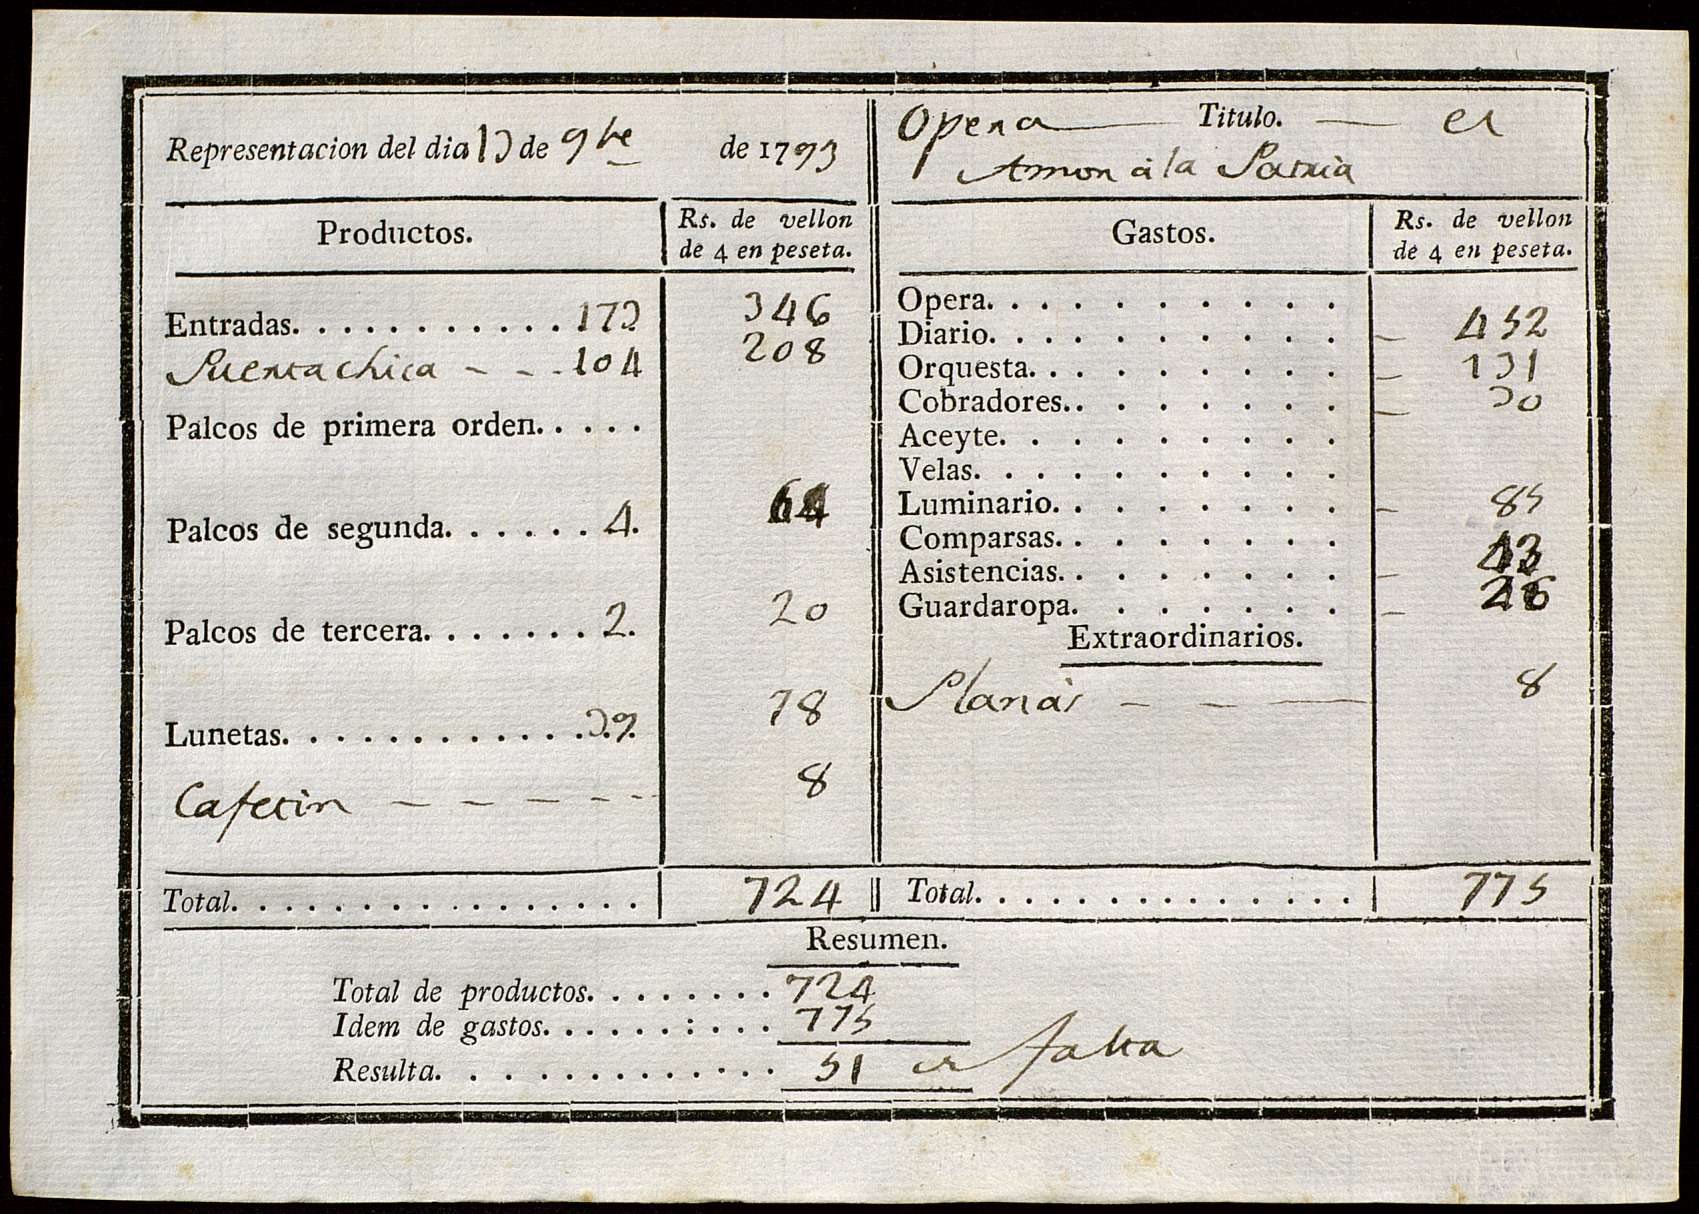 Representacion del dia 13 de 9bre de 1793
Opera Titulo. el
Amor à la Patria
Productos. Rs. de vellon de 4 en peseta.
Entradas. . . . . . . . . . . 173 346
Puerta chica - - - 104 208
Palcos de primera orden. . . . .
Palcos de segunda. . . . . . 4. 64
Palcos de tercera. . . . . . . 2. 20
Lunetas. . . . . . . . . . . . 39. 78
Cafetin - - - - - - 8
Total. . . . . . . . . . . . . . . . . 724
Gastos. Rs. de vellon de 4 en peseta.
Opera. . . . . . . . . .
Diario. . . . . . . . . . - 452
Orquesta. . . . . . . . . - 131
Cobradores. . . . . . . . - 30
Aceyte. . . . . . . . .
Velas. . . . . . . . . .
Luminario. . . . . . . . - 85
Comparsas. . . . . . . .
Asistencias. . . . . . . . - 43
Guardaropa. . . . . . . - 26
Extraordinarios.
Planas - - - 8
Total. . . . . . . . . . . . . . . 775
Resumen.
Total de productos. . . . . . . . 724
Idem de gastos. . . . . . : . . . . 775
Resulta. . . . . . . . . . . . . 51 es falta